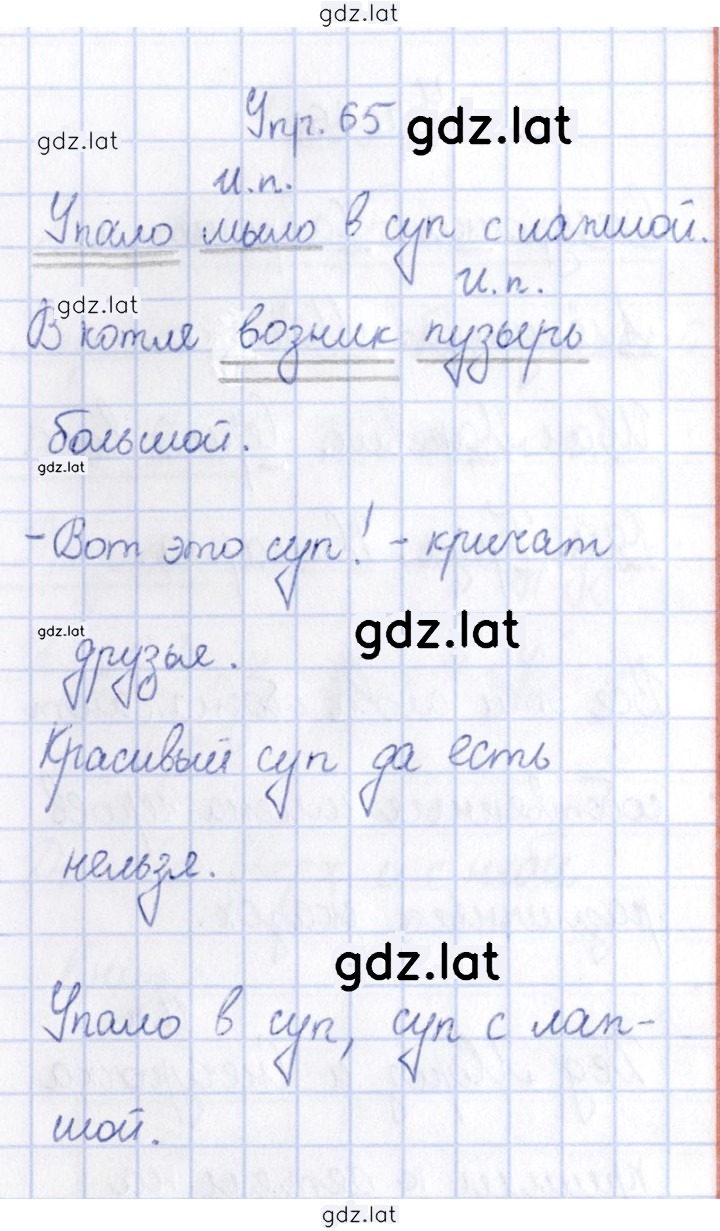 gdz.lat
Упр. 65 gdz.lat
gdz.lat
и.п.
Упало мыло в суп с лапшой.
и.п.
gdz.lat
В котле возник пузырь
большой.
gdz.lat
- Вот это суп! - кричат
gdz.lat
gdz.lat
друзья.
Красивый суп да есть
нельзя.
gdz.lat
Упало в суп, суп с лап-
шой.
gdz.lat